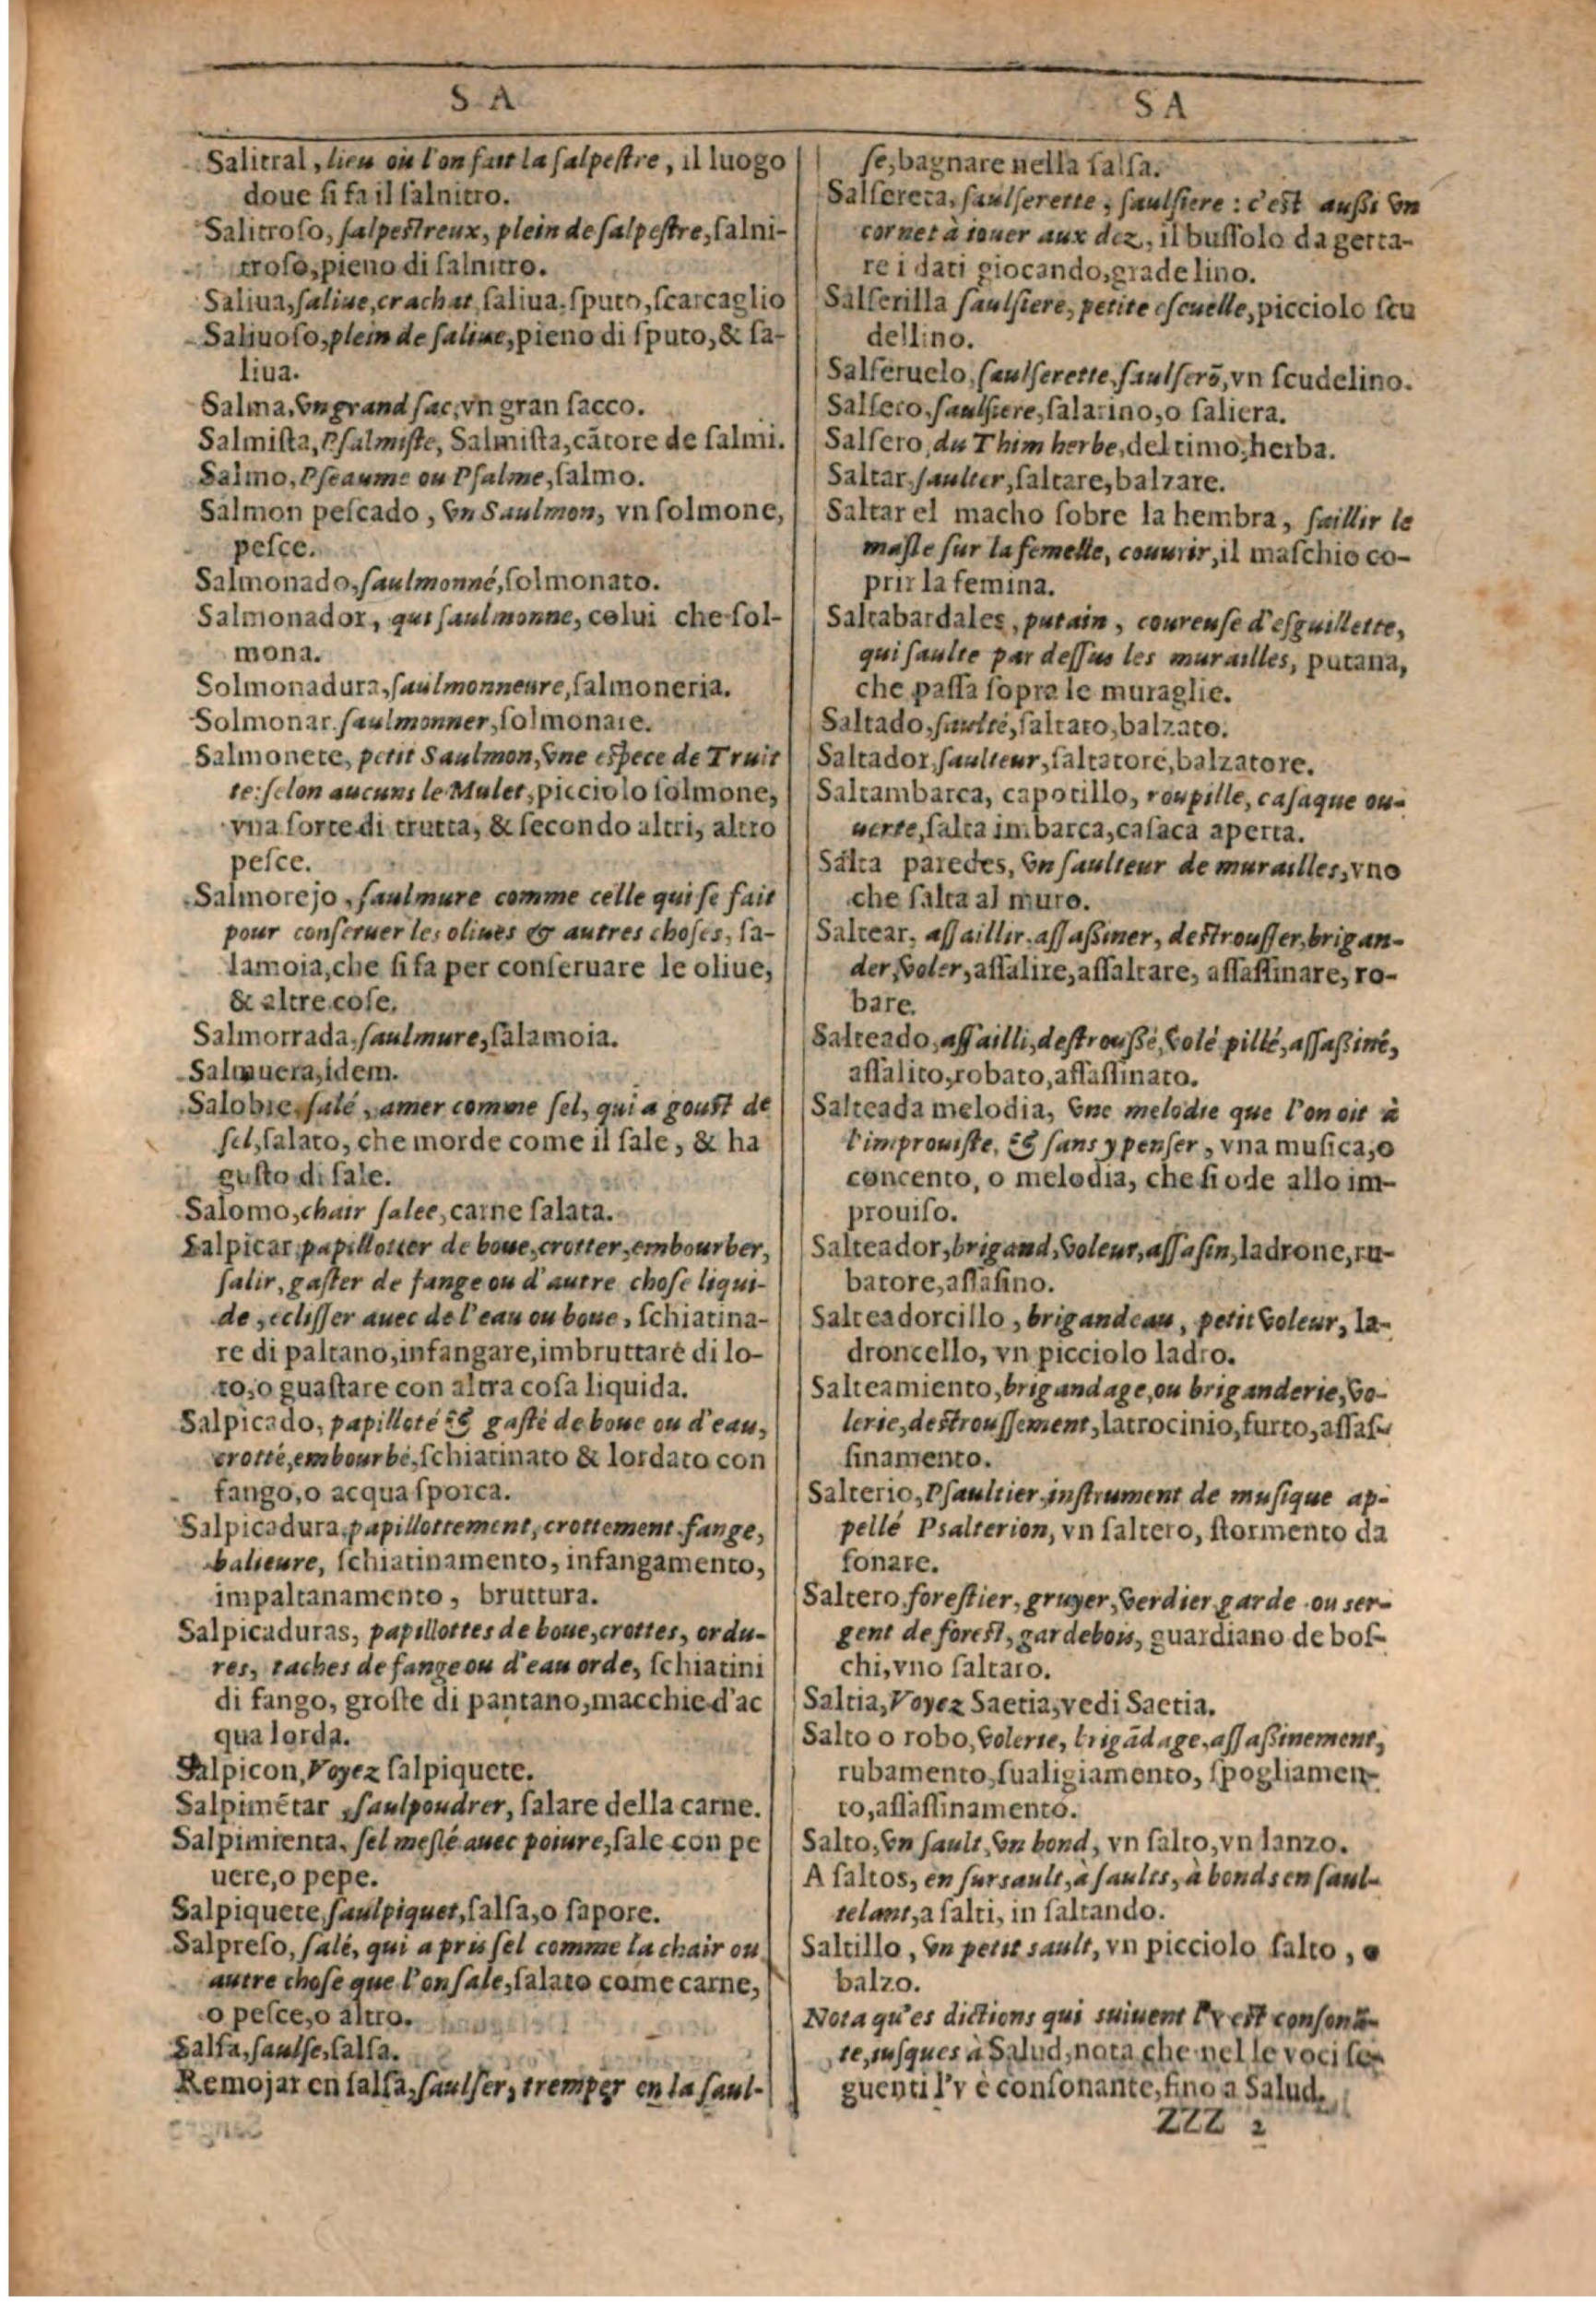 S A
Salitral, lieu où l'on fait la salpestre, il luogo
doue si fa il salnitro.
Salitroso, salpestreux, plein de salpestre, salni-
troso, pieno di salnitro.
Saliua, saliue, crachat, saliua, sputo, scarcaglio
Saliuoso, plein de saliue, pieno di sputo, & sa-
liua.
Salma, vn grand sac, vn gran sacco.
Salmista, Psalmiste, Salmista, cãtore de salmi.
Salmo, Pseaume ou Psalme, salmo.
Salmon pescado, vn Saulmon, vn solmone,
pesce.
Salmonado, saulmonné, solmonato.
Salmonador, qui saulmonne, colui che sol-
mona.
Solmonadura, saulmonneure, salmoneria.
Solmonar, saulmonner, solmonare.
Salmonete, petit Saulmon, vne espece de Truit
te: selon aucuns le Mulet, picciolo solmone,
vna sorte di trutta, & secondo altri, altro
pesce.
Salmorejo, saulmure comme celle qui se fait
pour conseruer les oliues & autres choses, sa-
lamoia, che si fa per conseruare le oliue,
& altre cose.
Salmorrada, saulmure, salamoia.
Salmuera, idem.
Salobre, salé, amer comme sel, qui a goust de
sel, salato, che morde come il sale, & ha
gusto di sale.
Salomo, chair salee, carne salata.
Salpicar, papillotter de boue, crotter, embourber,
salir, gaster de fange ou d'autre chose liqui-
de, eclisser auec de l'eau ou boue, schiatina-
re di paltano, infangare, imbruttare di lo-
to, o guastare con altra cosa liquida.
Salpicado, papilloté & gasté de boue ou d'eau,
crotté, embourbé, schiatinato & lordato con
fango, o acqua sporca.
Salpicadura, papillottement, crottement, fange,
balieure, schiatinamento, infangamento,
impaltanamento, bruttura.
Salpicaduras, papillottes de boue, crottes, ordu-
res, taches de fange ou d'eau orde, schiatini
di fango, groste di pantano, macchie d'ac
qua lorda.
Salpicon, Voyez salpiquete.
Salpimẽtar, saulpoudrer, salare della carne.
Salpimienta, sel meslé auec poiure, sale con pe
uere, o pepe.
Salpiquete, saulpiquet, salsa, o sapore.
Salpreso, salé, qui a pris sel comme la chair ou
autre chose que l'on sale, salato come carne,
o pesce, o altro.
Salsa, saulse, salsa.
Remojar en salsa, saulser, tremper en la saul-
S A
se, bagnare nella salsa.
Salsereta, saulserette, saulsiere: c'est aussi vn
cornet à iouer aux dez, il bussolo da getta-
re i dati giocando, gradelino.
Salserilla saulsiere, petite escuelle, picciolo scu
dellino.
Salseruelo, saulserette, saulserõ, vn scudelino.
Salsero, saulsiere, salarino, o saliera.
Salsero, du Thim herbe, del timo, herba.
Saltar, saulter, saltare, balzare.
Saltar el macho sobre la hembra, saillir le
masle sur la femelle, couurir, il maschio co-
prir la femina.
Saltabardales, putain, coureuse d'esguillette,
qui saulte par dessus les murailles, putana,
che passa sopra le muraglie.
Saltado, saulté, saltato, balzato.
Saltador, saulteur, saltatore, balzatore.
Saltambarca, capotillo, roupille, casaque ou-
uerte, salta imbarca, casaca aperta.
Salta paredes, vn saulteur de murailles, vno
che salta al muro.
Saltear, assaillir, assassiner, destrousser, brigan-
der, voler, assalire, assaltare, assassinare, ro-
bare.
Salteado, assailli, destroussé, volé pillé, assassiné,
assalito, robato, assassinato.
Salteada melodia, vne melodie que l'on oit à
l'improuiste, & sans y penser, vna musica, o
concento, o melodia, che si ode allo im-
prouiso.
Salteador, brigand, voleur, assasin, ladrone, ru-
batore, assasino.
Salteadorcillo, brigandeau, petit voleur, la-
droncello, vn picciolo ladro.
Salteamiento, brigandage, ou briganderie, vo-
lerie, destroussement, latrocinio, furto, assas-
sinamento.
Salterio, Psaultier, instrument de musique ap-
pellé Psalterion, vn saltero, stormento da
sonare.
Saltero, forestier, gruyer, verdier, garde ou ser-
gent de forest, gardebois, guardiano de bos-
chi, vno saltaro.
Saltia, Voyez Saetia, vedi Saetia.
Salto o robo, volerie, brigãdage, assassinement,
rubamento, sualigiamento, spogliamen-
to, assassinamento.
Salto, vn sault, vn bond, vn salto, vn lanzo.
A saltos, en sursault, à saults, à bonds en saul-
telant, a salti, in saltando.
Saltillo, vn petit sault, vn picciolo salto, o
balzo.
Nota qu'es dictions qui suiuent l'v est consonã-
te, iusques à Salud, nota che nelle voci se-
guenti l'v è consonante, fino a Salud.
ZZZ 2